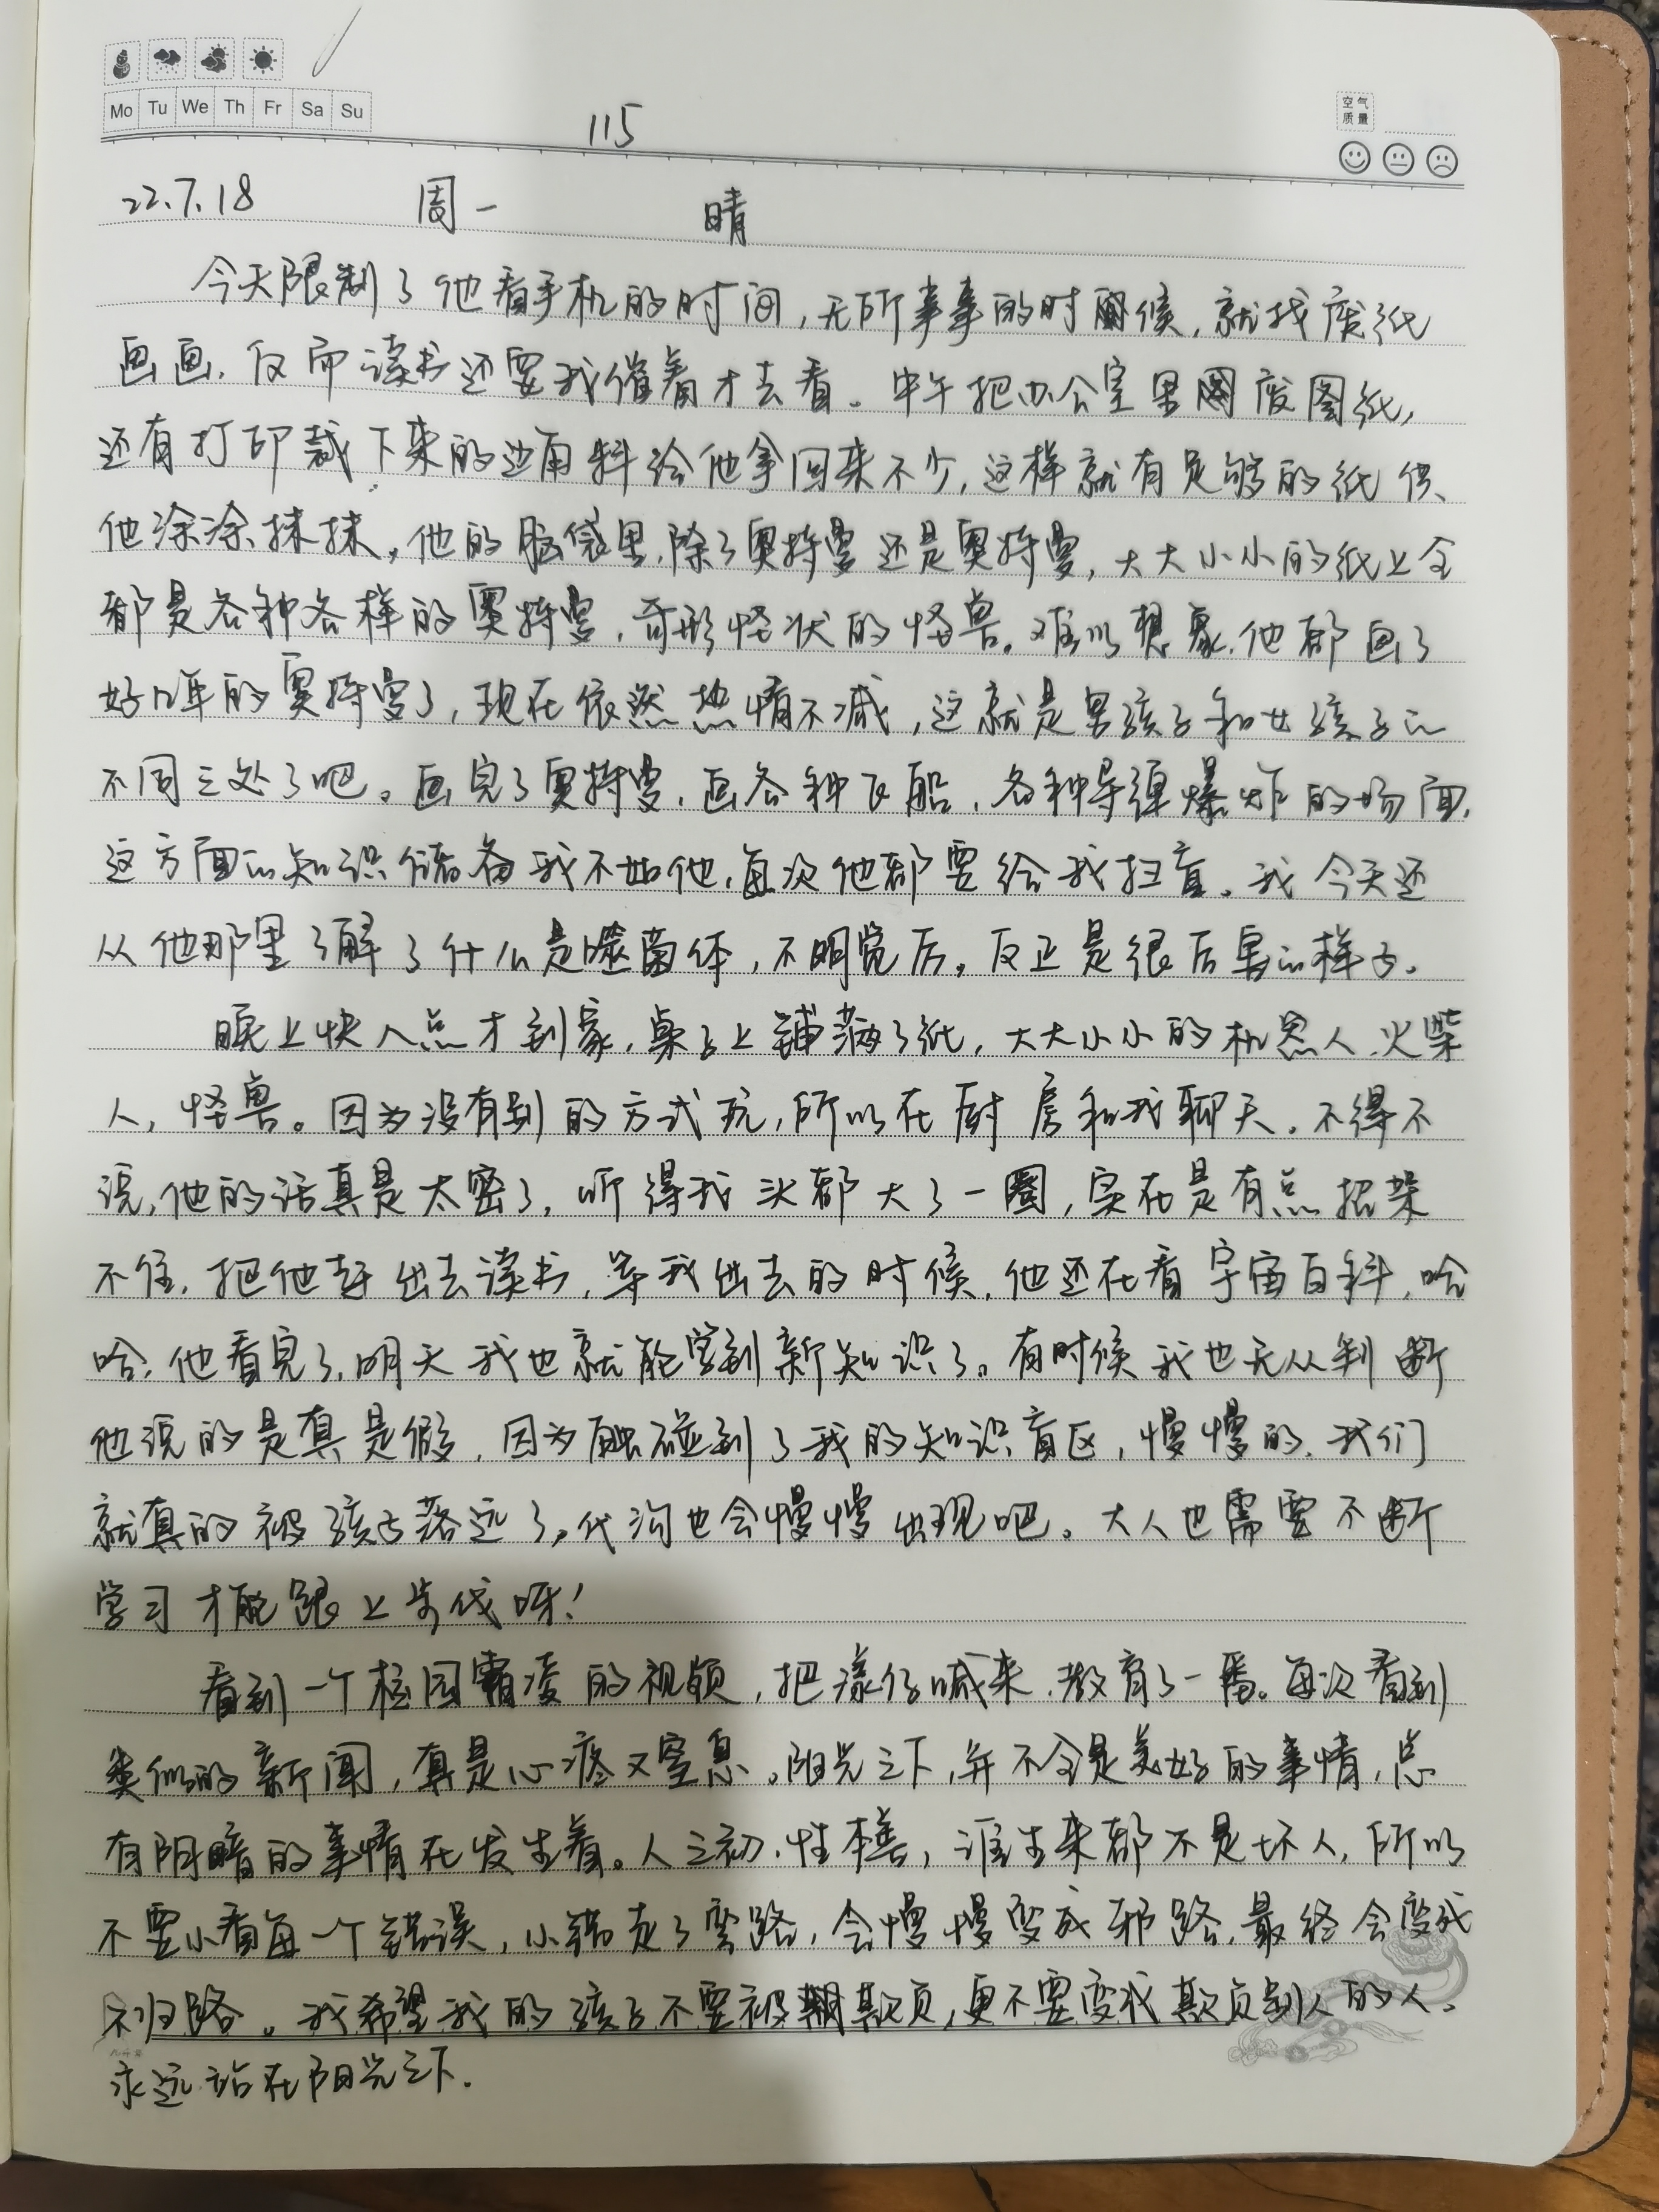 Mo Tu We Th Fr Sa Su
空气
质量
115
22.7.18 周一 晴
今天限制了他看手机的时间,无所事事的时候,就找废纸
画画,反而读书还要我催着才去看。中午把办公室里废图纸,
还有打印裁下来的边角料给他拿回来不少,这样就有足够的纸供
他涂涂抹抹,他的脑袋里,除了奥特曼还是奥特曼,大大小小的纸上全
都是各种各样的奥特曼,奇形怪状的怪兽。难以想象,他都画了
好几年的奥特曼了,现在依然热情不减,这就是男孩子和女孩子的
不同之处了吧。画完了奥特曼,画各种飞船,各种导弹爆炸的场面,
这方面的知识储备我不如他,每次他都要给我扫盲。我今天还
从他那里了解了什么是噬菌体,不明觉厉。反正是很厉害的样子。
晚上快八点才到家,桌子上铺满了纸,大大小小的机器人、火柴
人,怪兽。因为没有别的方式玩,所以在厨房和我聊天。不得不
说,他的话真是太密了,听得我头都大了一圈,实在是有点招架
不住,把他赶出去读书,等我出去的时候,他还在看宇宙百科,哈
哈,他看完了,明天我也就能学到新知识了。有时候我也无从判断
他说的是真是假,因为触碰到了我的知识盲区,慢慢的,我们
就真的被孩子落远了。代沟也会慢慢出现吧。大人也需要不断
学习才能跟上步伐呀!
看到一个校园霸凌的视频,把漾仔喊来,教育了一番。每次看到
类似的新闻,真是心疼又窒息。阳光之下,并不全是美好的事情,总
有阴暗的事情在发生着。人之初,性本善,谁生来都不是坏人,所以
不要小看每一个错误,小错走了弯路,会慢慢变成邪路,最终会变成
不归路。我希望我的孩子不要被欺负,更不要变成欺负别人的人。
永远站在阳光之下.